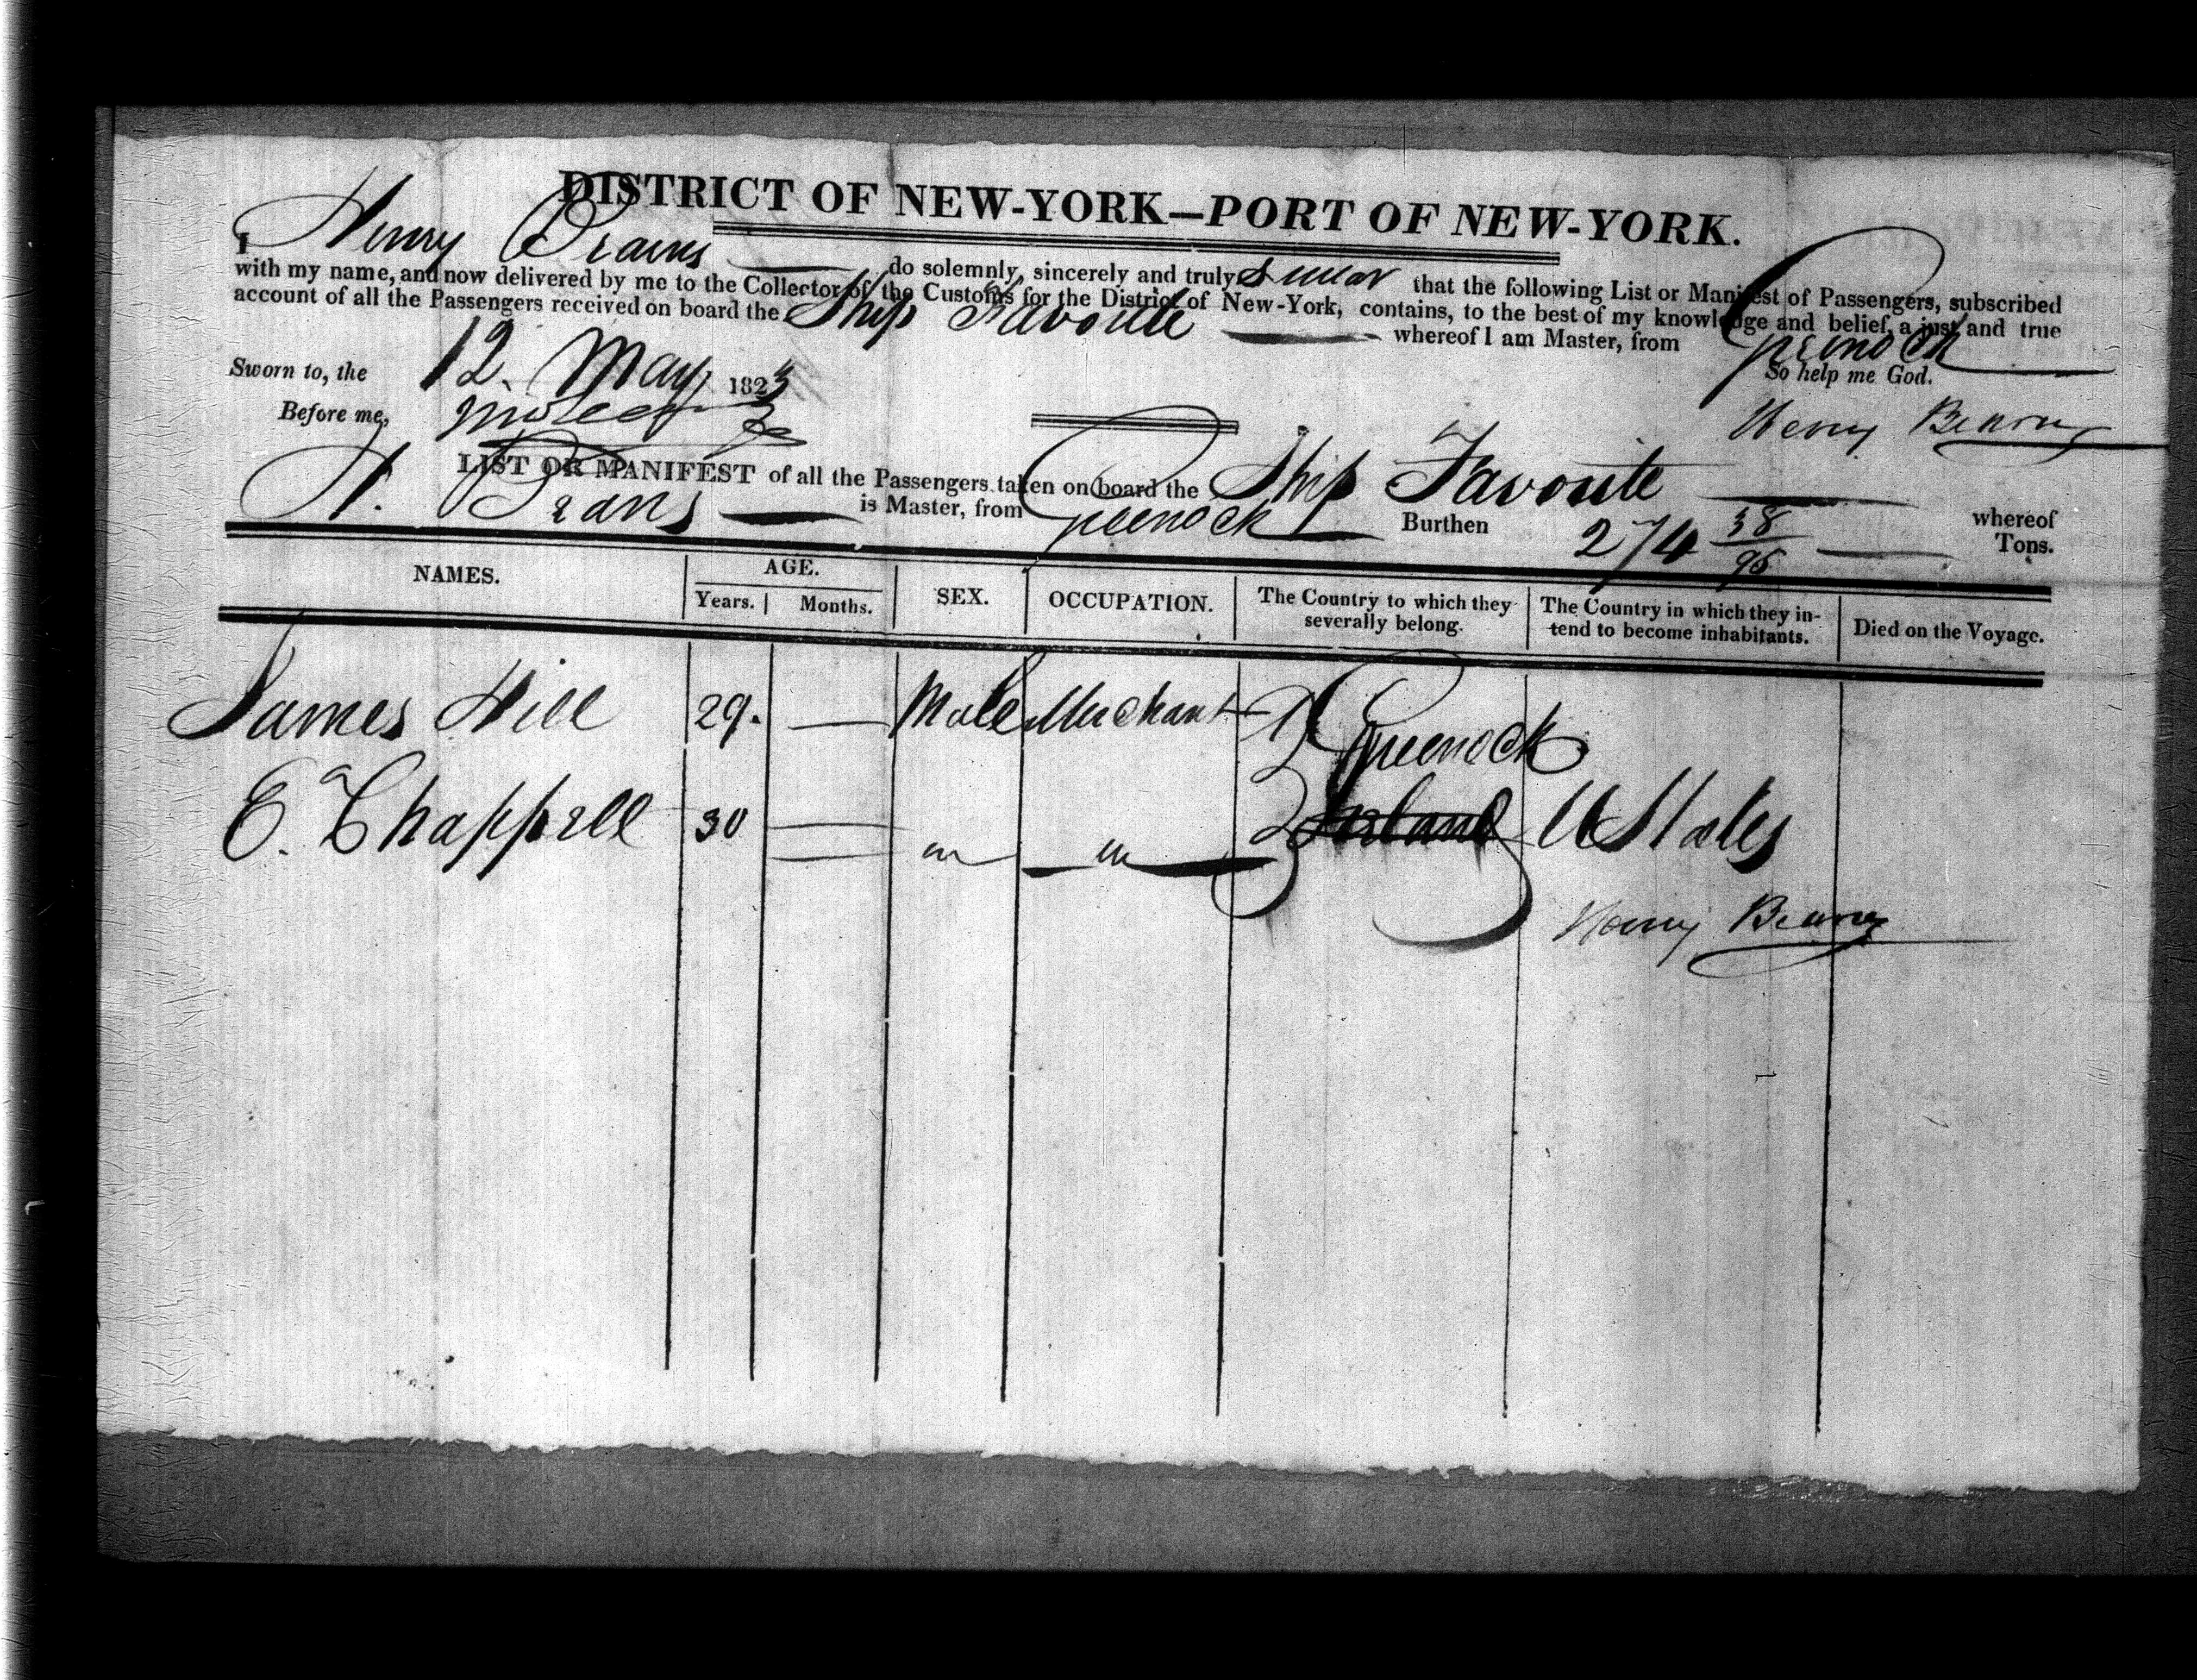 DISTRICT OF NEW-YORK—PORT OF NEW-YORK.
I Henry do solemnly, sincerely and truly swear that the following List or Manifest of Passengers, subscribed
with my name, and now delivered by me to the Collector of the Customs for the District of New-York, contains, to the best of my knowledge and belief, a just and true
account of all the Passengers received on board the Ship Favorite whereof I am Master, from Greenock
Sworn to, the 12. May 1823 So help me God.
Before me, Henry
LIST OR MANIFEST of all the Passengers taken on board the Ship Favorite whereof
H. is Master, from Greenock Burthen 274 38/95 Tons.
NAMES. AGE. SEX. OCCUPATION. The Country to which they severally belong. The Country in which they intend to become inhabitants. Died on the Voyage.
Years. Months.
James Hill 29. — Male Merchant Greenock
E. Chappell 30 — " " Ireland U States
Henry